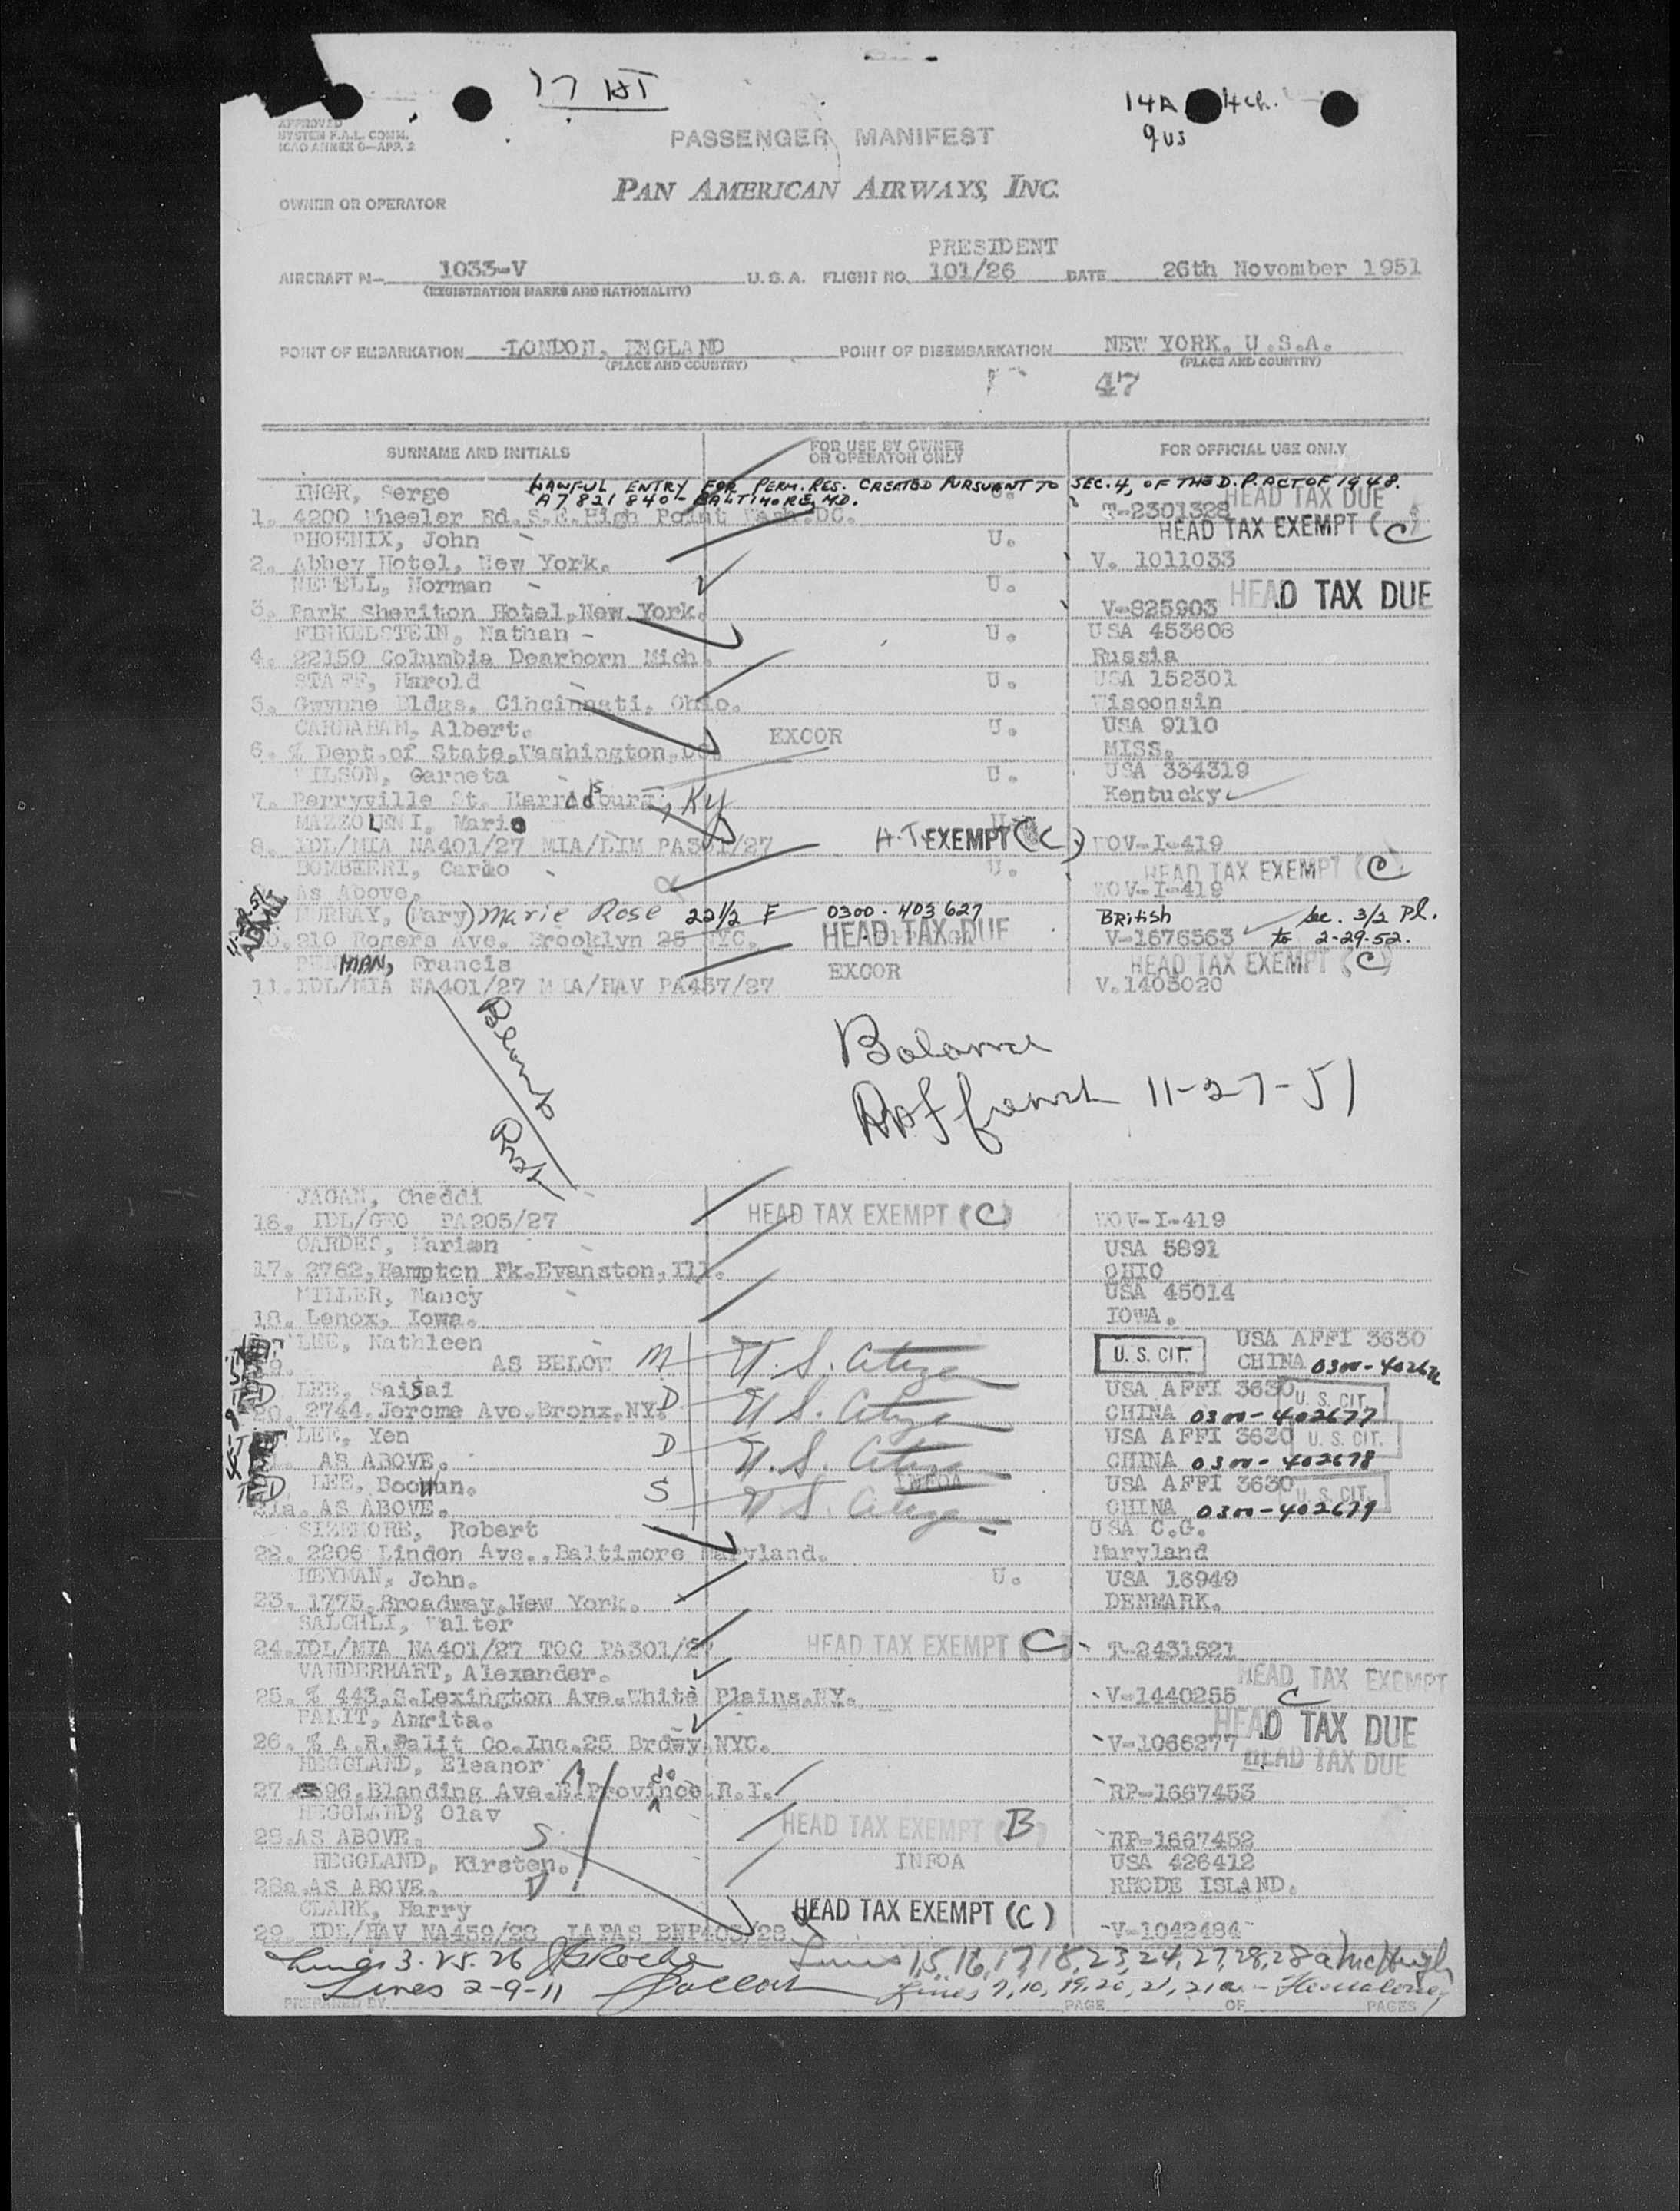 17 HT
14A 4ch.
9us
APPROVED
SYSTEM F.A.L. COMM.
ICAO ANNEX 9—APP. 2
PASSENGER MANIFEST
OWNER OR OPERATOR
PAN AMERICAN AIRWAYS, INC.
PRESIDENT
AIRCRAFT N— 1033-V U.S.A. FLIGHT NO. 101/26 DATE 26th November 1951
(REGISTRATION MARKS AND NATIONALITY)
POINT OF EMBARKATION LONDON, ENGLAND POINT OF DISEMBARKATION NEW YORK. U.S.A.
(PLACE AND COUNTRY) (PLACE AND COUNTRY)
47
SURNAME AND INITIALS FOR USE BY OWNER OR OPERATOR ONLY FOR OFFICIAL USE ONLY
LAWFUL ENTRY FOR PERM. RES. CREATED PURSUANT TO SEC. 4, OF THE D.P. ACT OF 1948.
INGR, Serge A7821840 - BALTIMORE, MD. HEAD TAX DUE
1. 4200 Wheeler Rd.S.E.High Point Wash.DC. T-2301328
PHOENIX, John U. HEAD TAX EXEMPT (C)
2. Abbey Hotel, New York. V. 1011033
NEWELL, Norman U. HEAD TAX DUE
3. Park Sheriton Hotel,New York. V-825903
FINKELSTEIN, Nathan U. USA 453608
4. 22150 Columbia Dearborn Mich. Russia
STAFF, Harold U. USA 152301
5. Gwynne Bldgs. Cincinnati, Ohio. Wisconsin
CARNAHAN, Albert. EXCOR U. USA 9110
6. % Dept.of State,Washington,DC. MISS.
WILSON, Garneta U. USA 334319
7. Perryville St. Harrodsburg, Ky Kentucky
MAZZOLENI, Mario U.
8. IDL/MIA NA401/27 MIA/LIM PA301/27 H.T. EXEMPT (C) WOV-I-419
BOMBIERI, Cardo U. HEAD TAX EXEMPT (C)
As Above. WOV-I-419
MURRAY, (Mary) Marie Rose 22 1/2 F 0300-403627 British Sec. 3/2 Pl.
10. 210 Rogers Ave. Brooklyn 25 NYC. HEAD TAX DUE V-1676563 to 2-29-52.
PENMAN, Francis EXCOR HEAD TAX EXEMPT (C)
11. IDL/MIA NA401/27 MIA/HAV PA437/27 V.1403020
Balance
11-27-51
JAGAN, Cheddi
16. IDL/GEO PA205/27 HEAD TAX EXEMPT (C) WOV-I-419
CARDES, Marion USA 5891
17. 2762,Hampton Pk.Evanston,Ill. OHIO
MILLER, Nancy USA 45014
18. Lenox, Iowa. IOWA.
LEE, Kathleen U. S. CIT. USA AFFI 3630
19. AS BELOW M U.S. Citizen CHINA
LEE, SaiSai USA AFFI 3630 U. S. CIT.
20. 2744,Jerome Ave.Bronx.NY. D U.S. Citizen CHINA 0300-402677
LEE, Yen USA AFFI 3630 U. S. CIT.
AS ABOVE. D U.S. Citizen CHINA 0300-402678
LEE, BooWun. INFOA USA AFFI 3630 U. S. CIT.
21a. AS ABOVE. S U.S. Citizen CHINA 0300-402679
SIZEMORE, Robert USA C.G.
22. 2206 Linden Ave.,Baltimore Maryland. Maryland
HEYMAN, John. U. USA 16949
23. 1775,Broadway,New York. DENMARK.
SALCHLI, Walter
24. IDL/MIA NA401/27 TOC PA301/27 HEAD TAX EXEMPT (C) T-2431521
VANDERHART, Alexander. HEAD TAX EXEMPT
25. % 443,S.Lexington Ave.White Plains.NY. V-1440255 C
PALIT, Amrita. HEAD TAX DUE
26. % A.R.Palit Co.Inc.25 Brdwy.NYC. V-1066277
HEGGLAND, Eleanor HEAD TAX DUE
27. 96,Blanding Ave.E.Province.R.I. RP-1667453
HEGGLAND, Olav
28. AS ABOVE. S HEAD TAX EXEMPT (B) RP-1667452
HEGGLAND, Kirsten. INFOA USA 426412
28a. AS ABOVE. D RHODE ISLAND.
CLARK, Harry
29. IDL/HAV NA459/28 HEAD TAX EXEMPT (C) V-1042484
Lines 3. 25. 26 Lines 1,5,16,17,18,23,24,27,28,28a McHugh
Lines 2-9-11 Lines 7,10,19,20,21,21a.
PREPARED BY PAGE OF PAGES